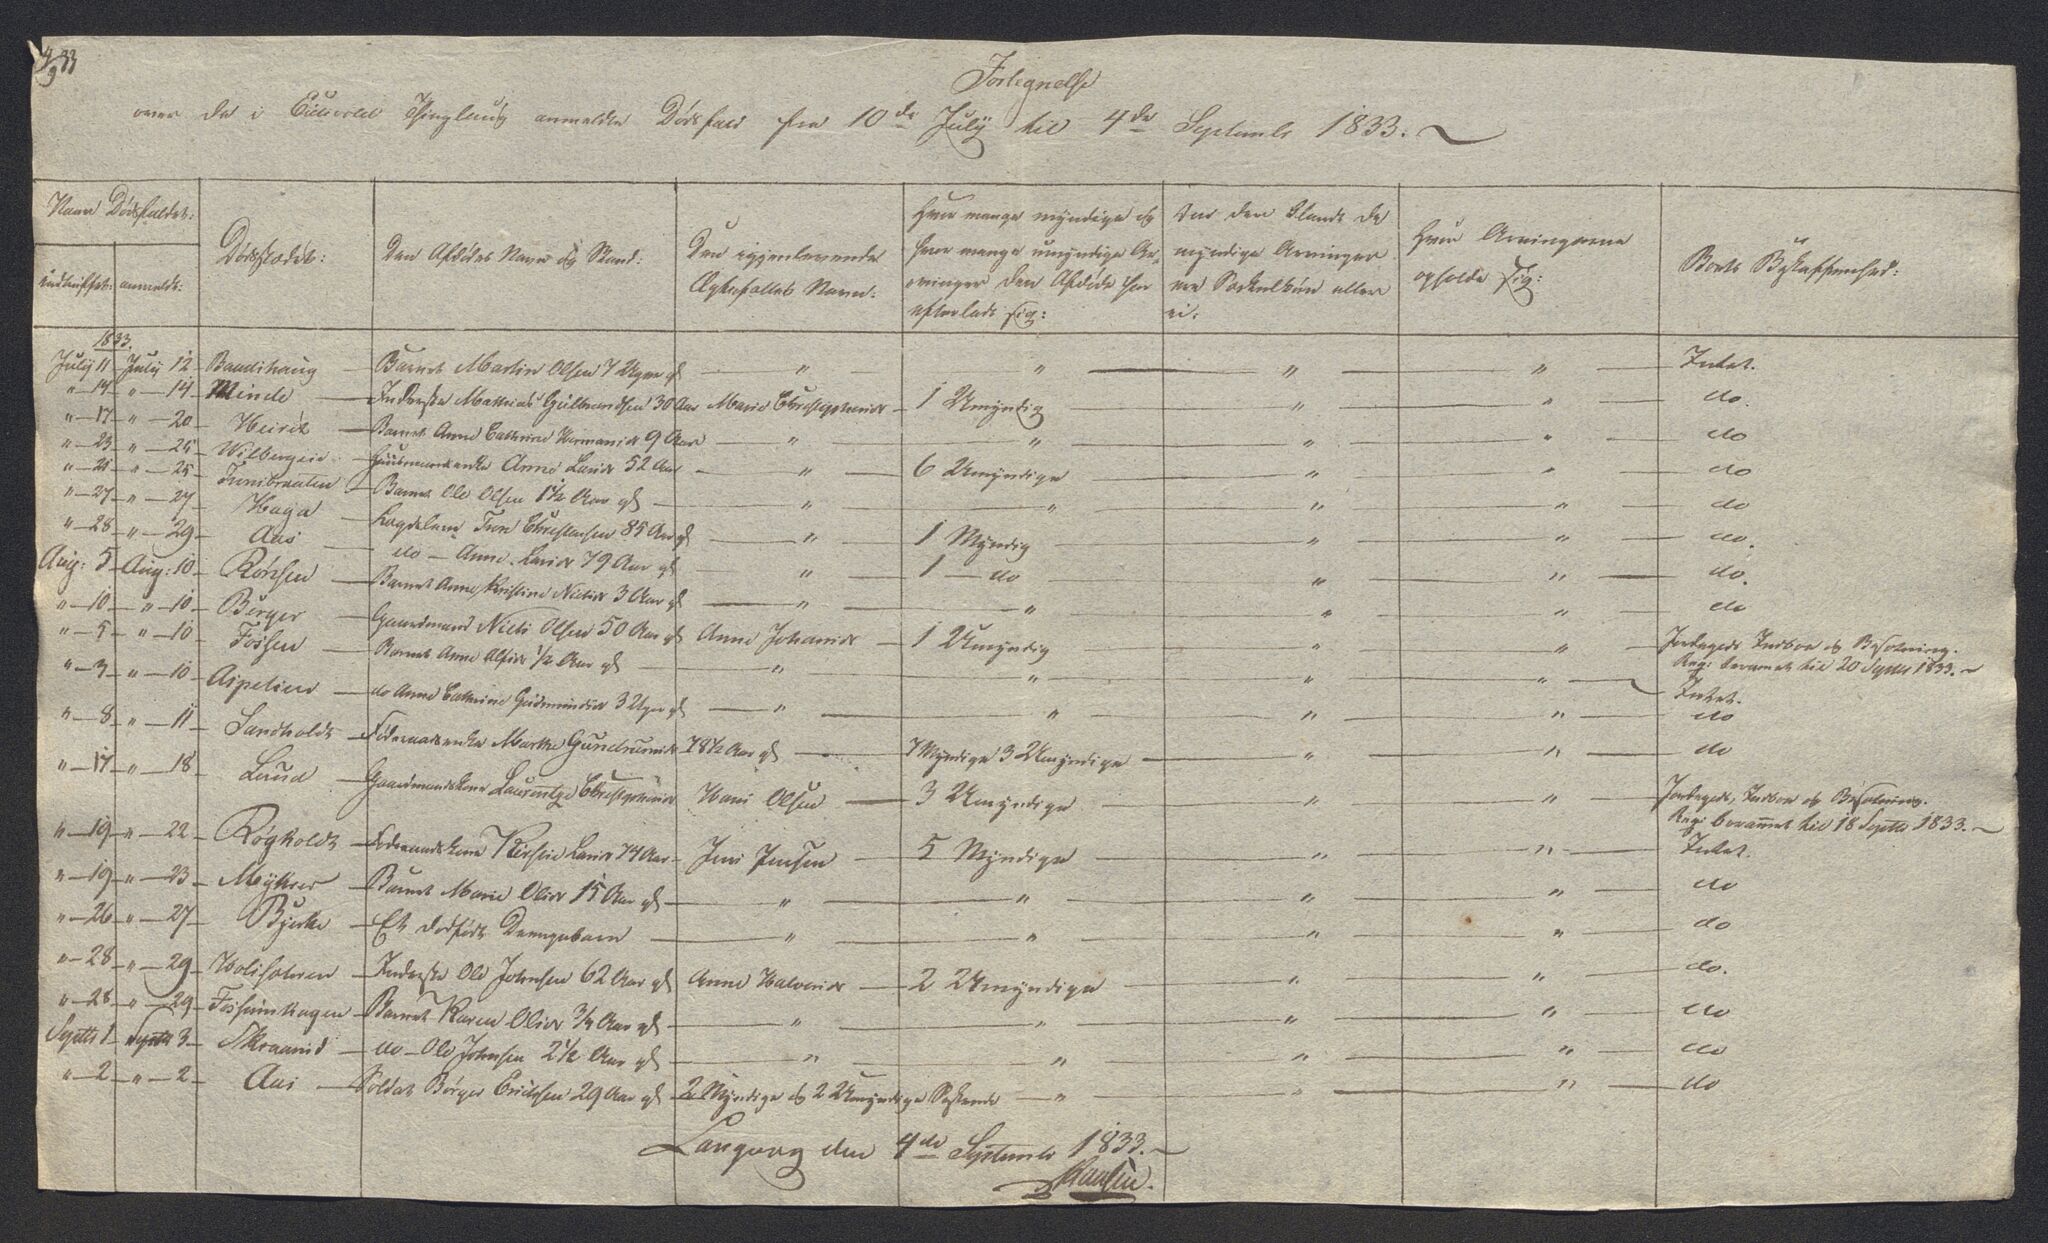 4/9 33
Fortegnelse
over de i Eidsvold Thinglaug anmeldte Dødsfald fra 10de July til 4de Septembr 1833.
Naar Dødsfaldet:
indtruffet: anmeldt:
Dødsstedet:
Den Afdødes Navn og Stand:
Den igjenlevende
Ægtefælles Navn:
Hvor mange myndige og
hvor mange umyndige Ar-
vinger den Afdøde har
efterladt sig:
Om den blandt de
myndige Arvinger
ere
ei:
Hvor Arvingerne
opholde sig:
Boets Beskaffenhed:
1833.
July 11 July 12 Bandihaug Barnet Martin Olsen 7 Uger gl " " " " Intet.
" 14 " 14 Minde Inderste Mathias Gulbrandsen 30 Aar Marie Christophersdr 1 Umyndig " " do.
" 17 " 20 Barnet Anne Cathrine Hermansdr 9 Aar " " " " do
" 23 " 25 Wilbergeie Huusmandsenke Anne Larsdr 52 Aar " 6 Umyndige " " do
" 21 " 25 Barnet Ole Olsen 1 1/2 Aar gl " " " " do
" 27 " 27 Haga Lægdslem Iver Christensen 85 Aar gl " 1 Myndig " " do.
" 28 " 29 Aas do Anne Larsdr 79 Aar gl " 1 do " " do.
Aug: 5 Aug: 10 Rønsen Barnet Anne Kristine Nielsdr 3 Aar gl " " " " do
" 10 " 10 Berger Gaardmand Niels Olsen 50 Aar gl Anne Johansdr 1 Umyndig " " Jordegods, Indboe og Besætning.
Reg: berammet til 20 Septbr 1833.
" 5 " 10 Fossen Barnet Anne Olsdr 1/2 Aar gl " " " " Intet.
" 3 " 10 do Anne Cathrine Gudmundsdr 3 Uger gl " " " " do
" 8 " 11 Sandholdt Føderaadsenke Marthe Gundersdr 78 1/2 Aar gl 7 Myndige 3 Umyndige " " do
" 17 " 18 Lund Gaardmandskone Laurentze Christophersdr Hans Olsen 3 Umyndige " " Jordegods, Indboe og Besætning.
Reg: berammet til 18 Septbr 1833.
" 19 " 22 Røgholdt Føderaadskone Kirstie Larsdr 74 Aar Jens Jensen 5 Myndige " " Intet.
" 19 " 23 Myhrer Barnet Marie Olsdr 15 Aar gl " " " " do
" 26 " 27 Byrke Et dødfødt Drengebarn " " " " do
" 28 " 29 Inderste Ole Johnsen 62 Aar gl Anne Halvorsdr 2 Umyndige " " do.
" 28 " 29 Barnet Karen Olsdr 3/4 Aar gl " " " " do
Septbr 1 Septbr 3 do Ole Johnsen 2 1/2 Aar gl " " " " do
" 2 " 2 Aas Soldat Børger Erichsen 29 Aar gl 2 Myndige og 2 Umyndige Søskende " " " do
Langvag den 4de Septembr 1833.